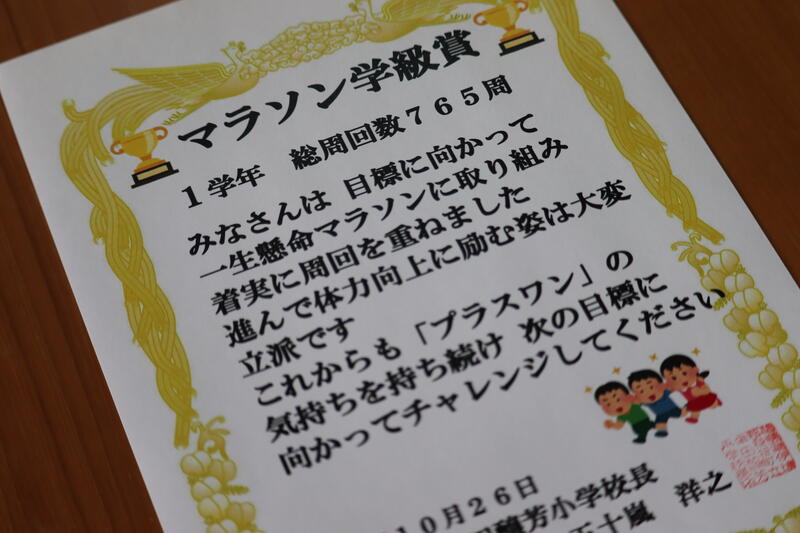 マラソン学級賞
1学年 総周回数765周
みなさんは 目標に向かって
一生懸命マラソンに取り組み
着実に周回を重ねました
進んで体力向上に励む姿は大変
立派です
これからも「プラスワン」の
気持ちを持ち続け 次の目標に
向かってチャレンジしてください
10月26日
芳小学校長
五十嵐 洋之